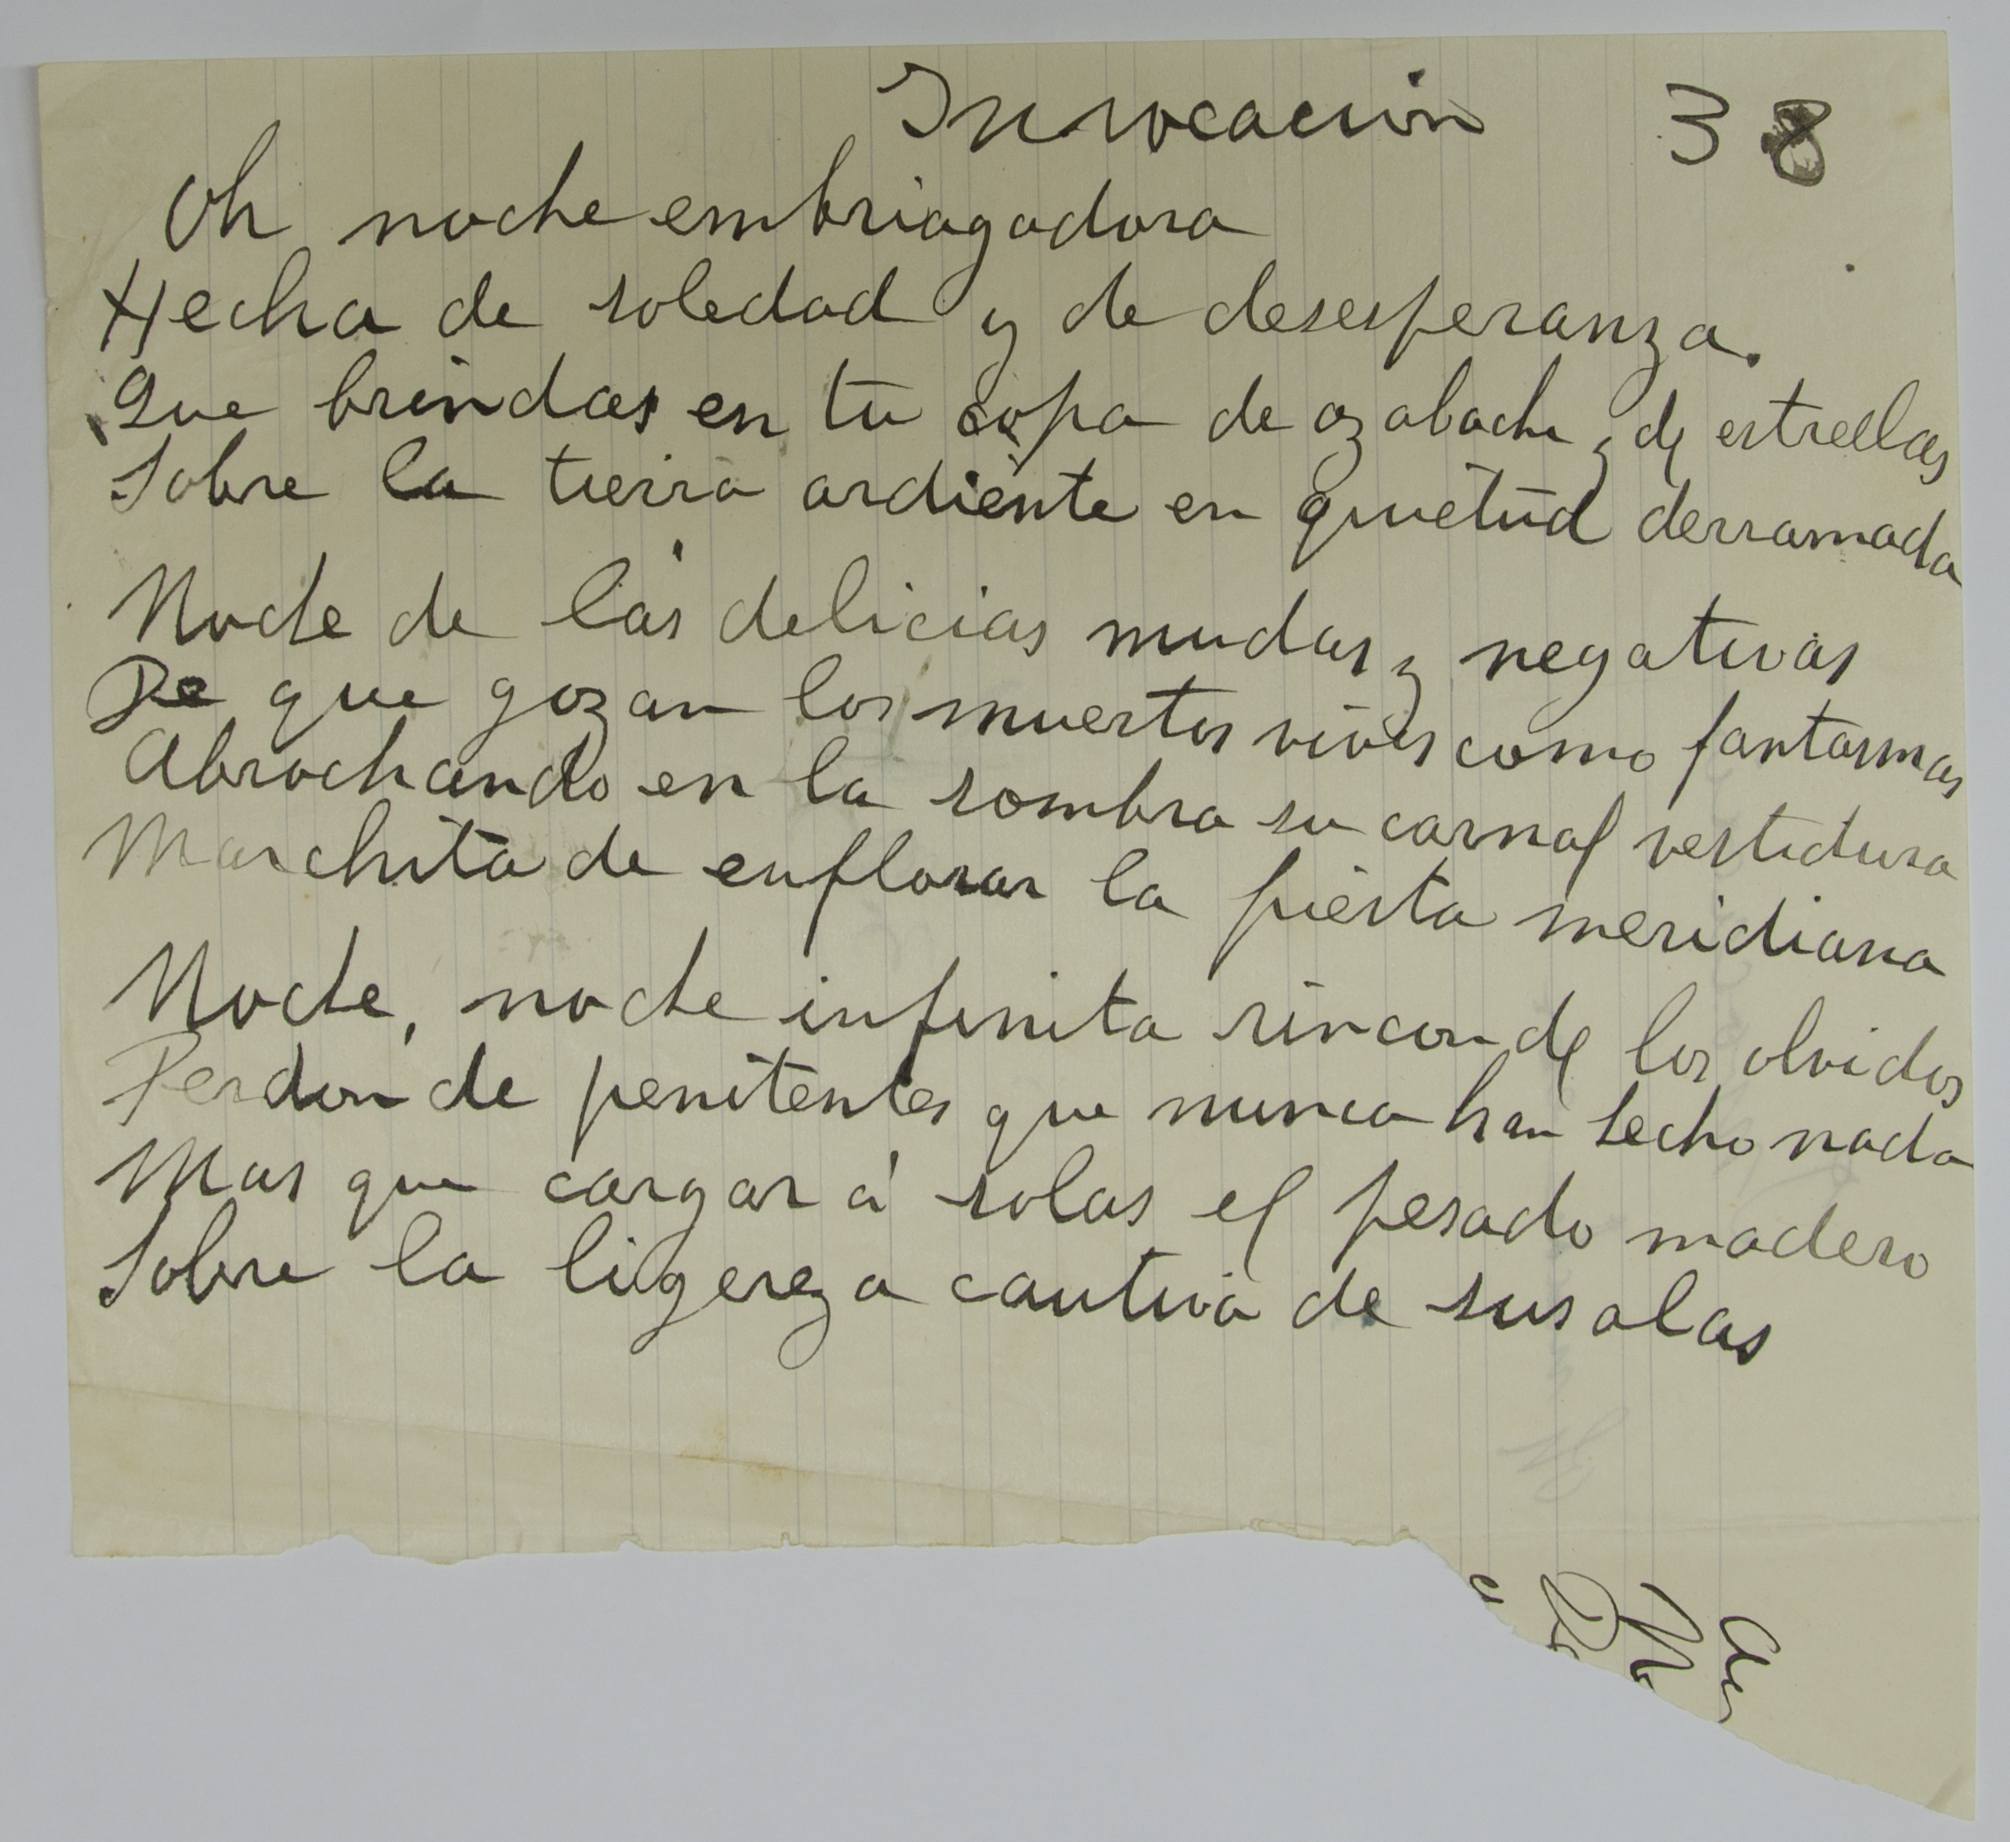 Invocacion 38
Oh noche embriagadora
Hecha de soledad y de desesperanza.
Que brindas en tu copa de azabache y de estrellas
Sobre la tierra ardiente en quietud derramada
Noche de las delicias mudas y negativas
De que gozan los muertos vivos como fantasmas
Abrochando en la sombra su carnal vestidura
Marchita de enflorar la fiesta meridiana
Noche, noche infinita rincon de los olvidos
Perdon de penitentes que nunca han hecho nada
Mas que cargar á solas el pesado madero
Sobre la ligereza cautiva de sus alas